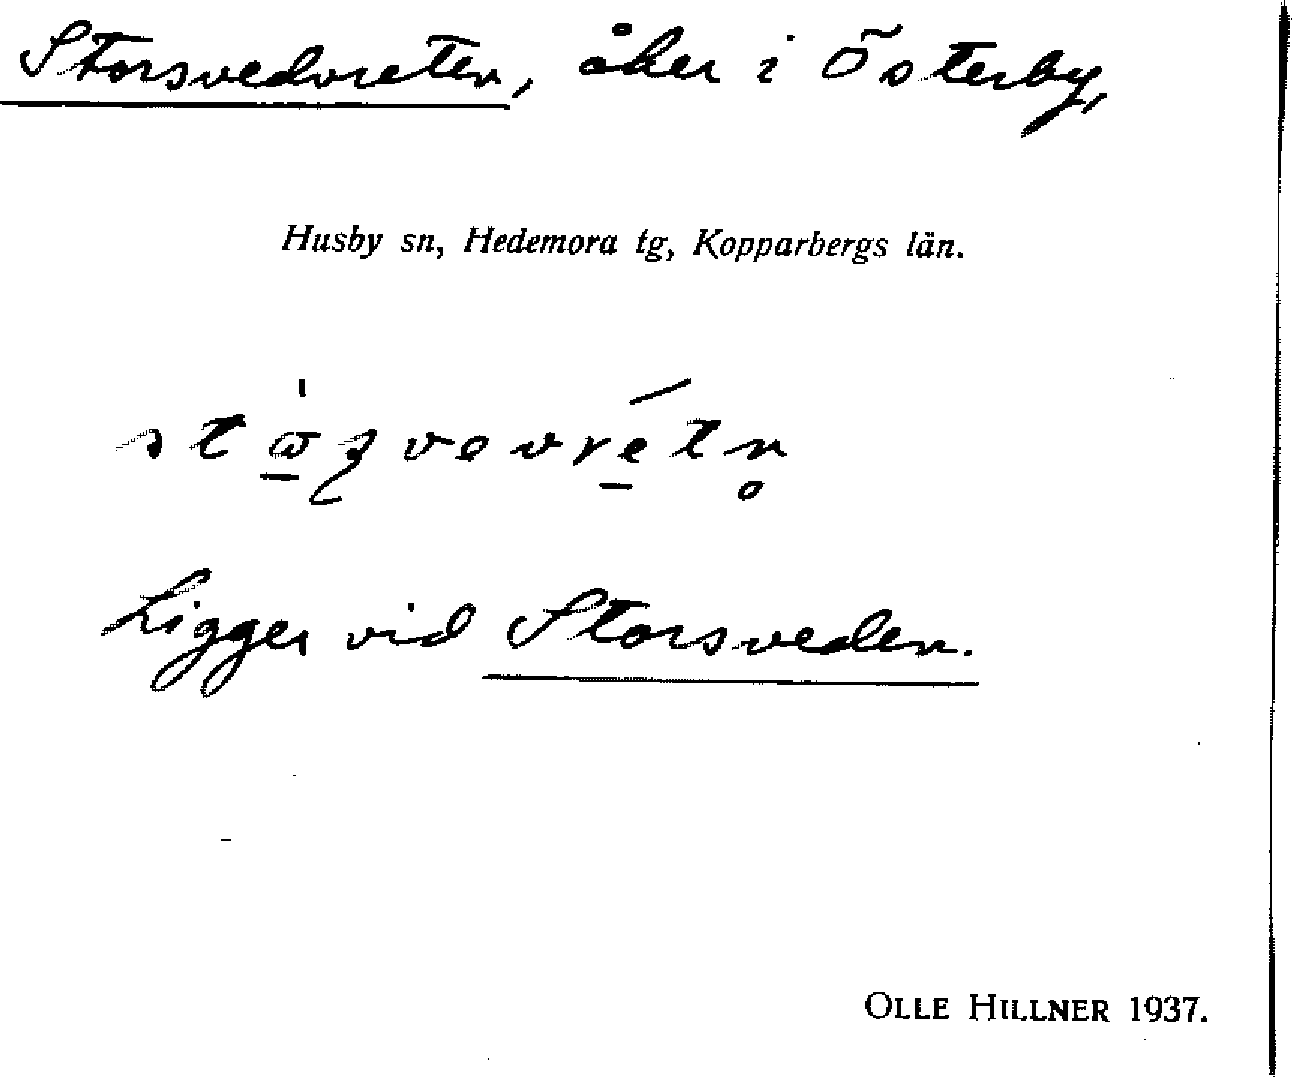 Storsvedvreten, åker i Österby,
Husby sn, Hedemora tg, Kopparbergs län.
Ligger vid Storsveden.
OLLE HILLNER 1937.